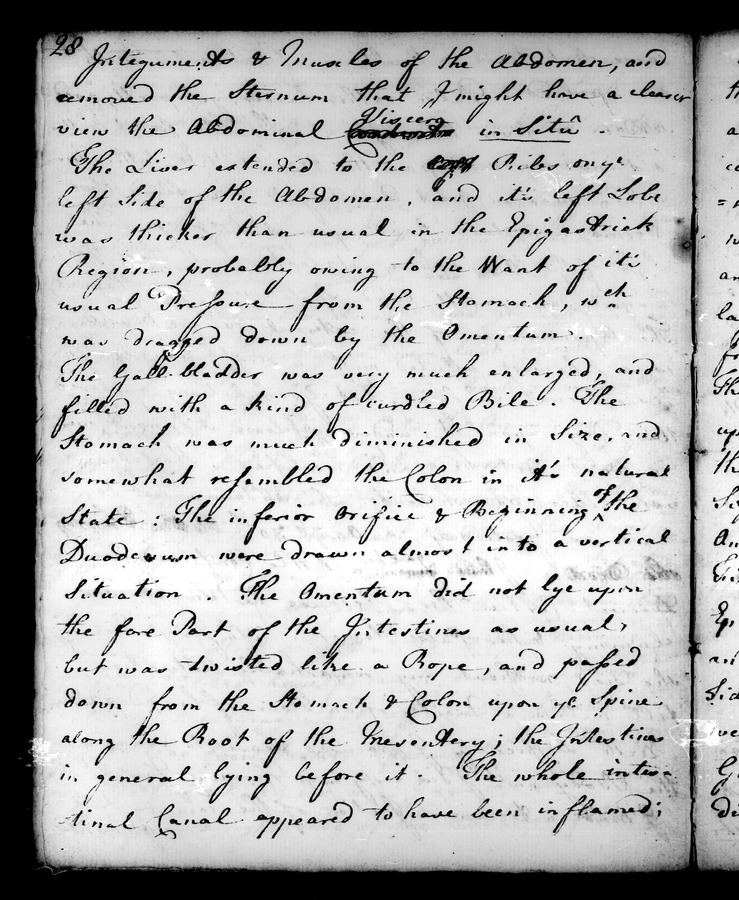 28
Integuments & Muscles of the Abdomen, and
removed the Sternum that I might have a clearer
view the Abdominal Viscera in Sitû.
The Liver extended to the Ribs on ye
left Side of the Abdomen, and it's left Lobe
was thicker than usual in the Epigastrick
Region, probably owing to the Want of it's
usual Pressure from the Stomach, wch
was dragged down by the Omentum.
The Gall-bladder was very much enlarged, and
filled with a kind of curdled Bile. The
Stomach was much diminished in Size, and
somewhat resembled the Colon in it's natural
State: The inferior Orifice & Beginning of the
Duodenum were drawn almost into a vertical
Situation. The Omentum did not lye upon
the fore Part of the Intestines as usual,
but was twisted like a Rope, and passed
down from the Stomach & Colon upon ye Spine
along the Root of the Mesentery; the Intestines
in general lying before it. The whole intes-
tinal Canal appeared to have been inflamed;